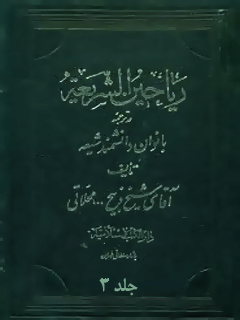 ریاحین الشریعه
در ترجمه
بانوان دانشمند شیعه
تألیف
آقای شیخ ذبیح الله محلاتی
دارالکتب الاسلامیه
جلد ۳